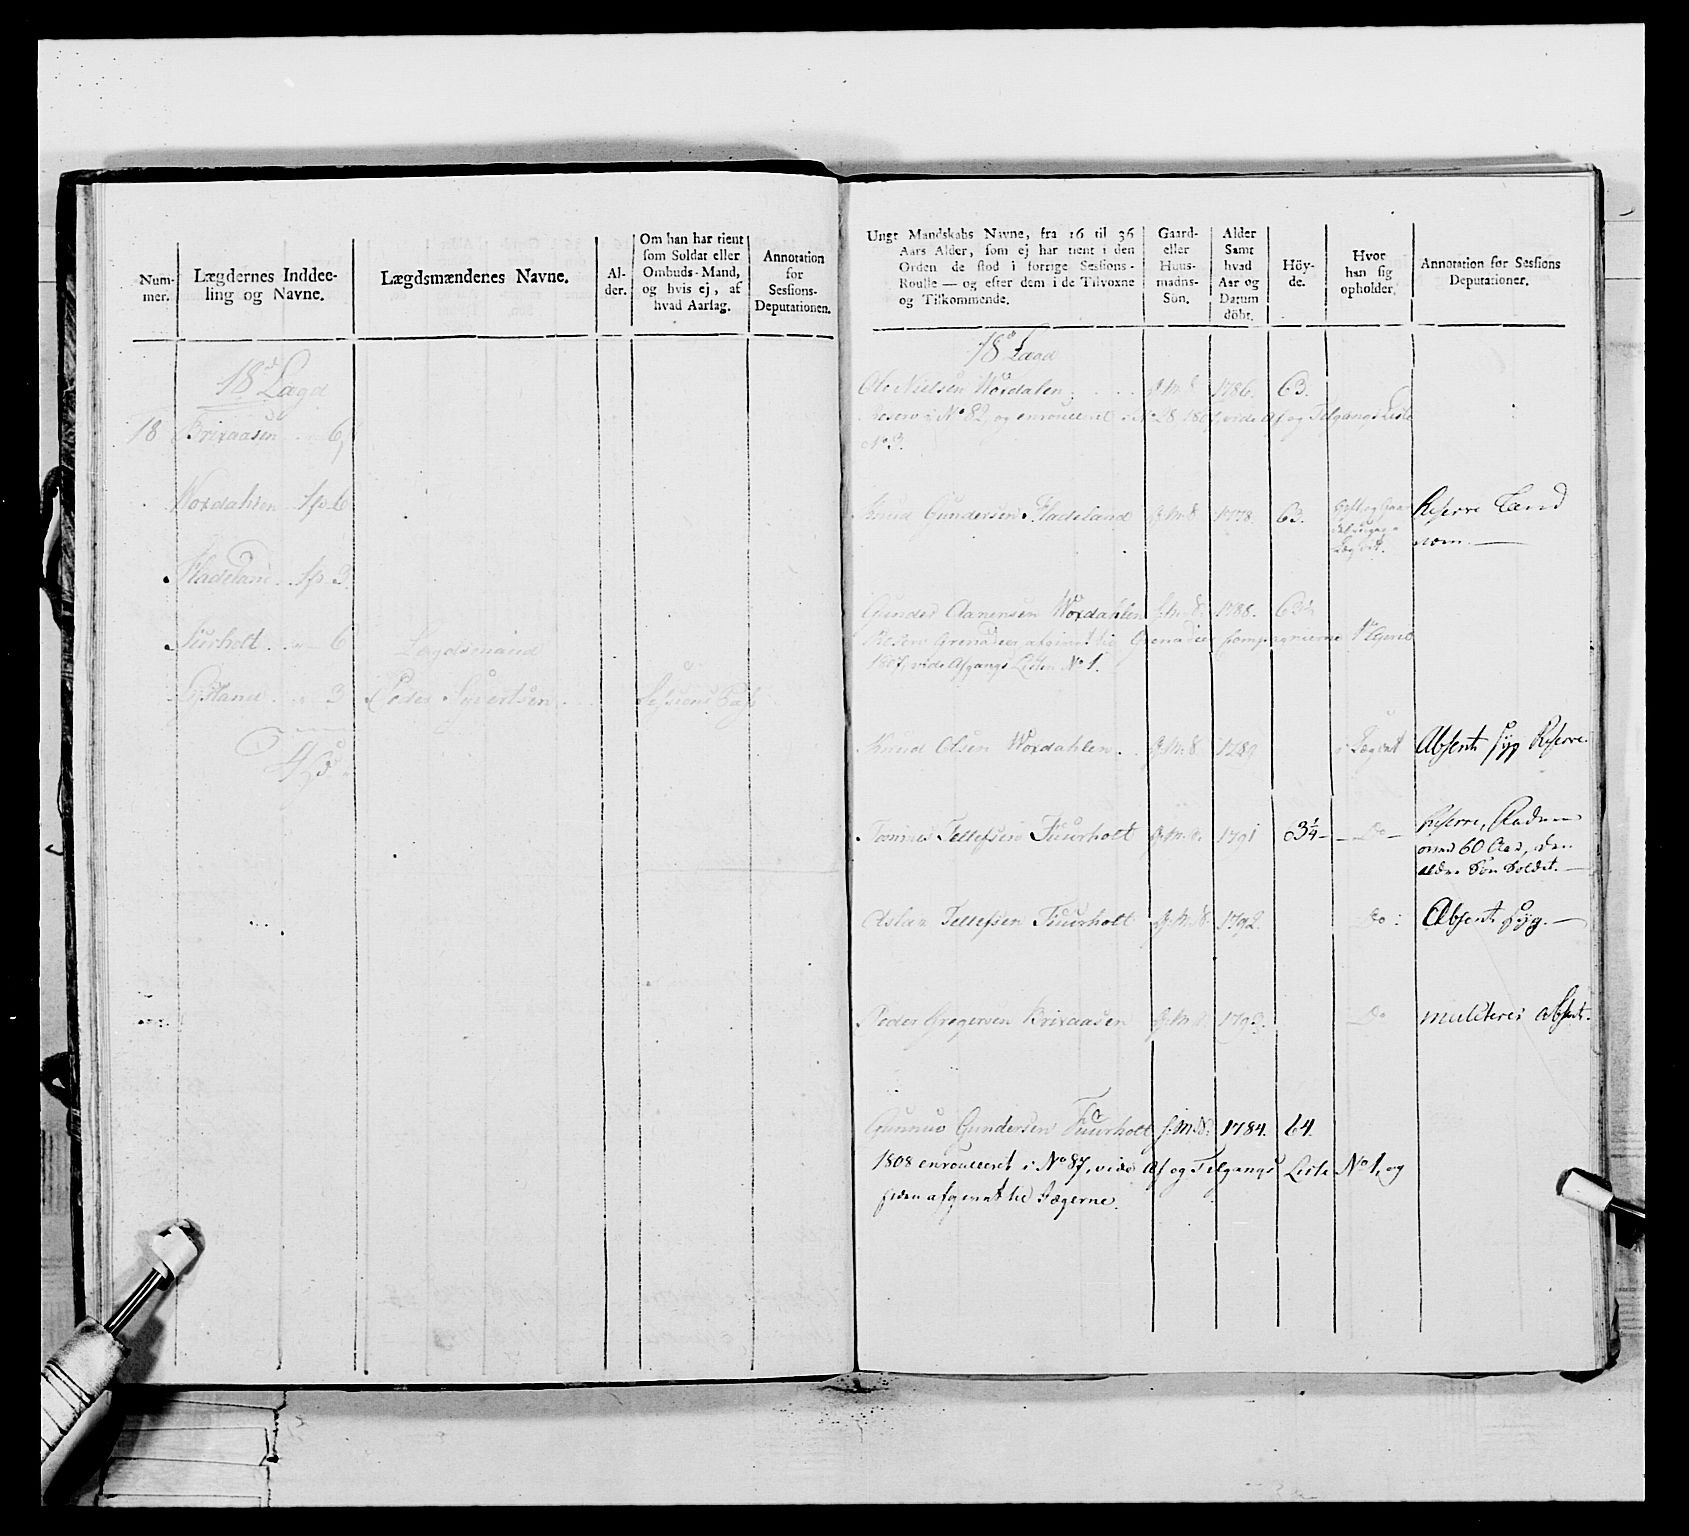 Num-
mer.
Lægdernes Inddee-
ling og Navne.
Lægdsmændenes Navne.
Al-
der.
Om han har tient
som Soldat eller
Ombuds-Mand,
og hvis ej, af
hvad Aarlag.
Annotation
for
Sessions-
Deputationen.
18d Lægd
18 Brixaasen 6
Woxdahlen 1/2 6
Fladeland 1/2 3
Fuurholt 6 Lægdsmand
3 Peder Syvertsen Sessions Pas
Ungt Mandskabs Navne, fra 16 til 36
Aars Alder, som ej har tient i den
Orden de stod i forrige Sessions-
Roulle — og efter dem i de Tilvoxne
og Tilkommende.
Gaard-
eller
Huus-
mands-
Sön.
Alder
Samt
hvad
Aar og
Datum
döbt.
Höy-
de.
Hvor
han sig
opholder.
Annotation for Sessions
Deputationer.
18d Lægd
Ole Nielsen Woxdalen g.m.S. 1786. 63.
reserv i No 82, og enroulleret i No 28 180 vide Af og Tilgangs Liste
No 3.
Knud Gundersen Fladeland g.m.S 1778. 63. Reserve Land
værn.
Gunder Aanensen Woxdahlen g.m.S. 1788. 63
Grenadeer afgivet til Grenadeer Compagnierne
180 vide Afgangs Listen No 1.
Knud Olsen Woxdahlen g.M.S. 1789 i Lægdet Absent syg Reserve
Tellefsen Fuurholt g.M.S. 1791 3 1/4 Do Reserve, Faderen
over 60 Aar, den
ældre Sön Soldat.
Aslak Tellefsen Fuurholt g.M.S 1792. Do Absent syg.
Peder Gregersen Brixaasen g.M.S. 1793. Do Absent.
Gunnuv Gundersen Fuurholt g.M.S. 1784. 64.
1808 enroulleret i No 87, vide Af og Tilgangs Liste No 1, og
siden afgivet til Jægerne.